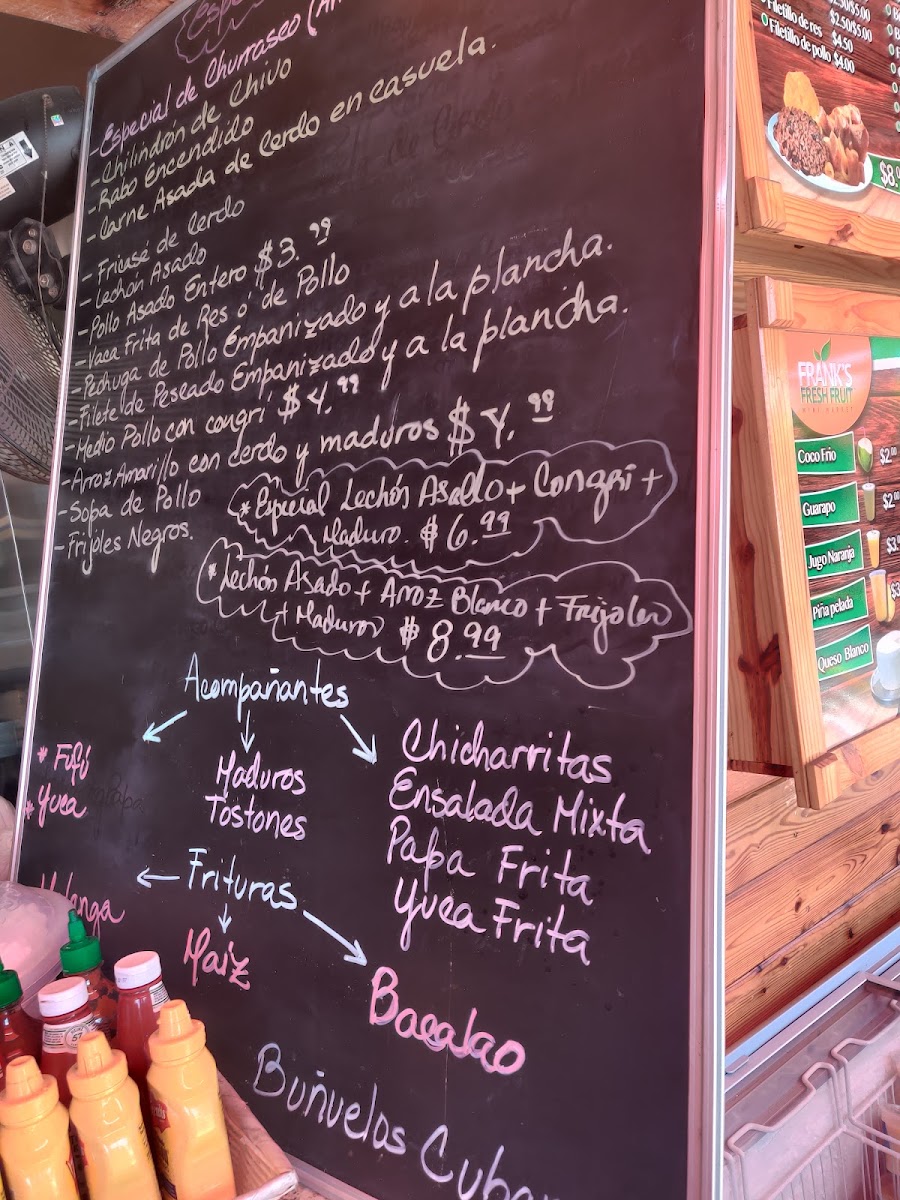 Especial de Churrasco
- Chilindrón de Chivo
- Rabo Encendido
- Carne Asada de Cerdo en casuela.
- Fricasé de Cerdo
- Lechón Asado
- Pollo Asado Entero $3.99
- Vaca Frita de Res ó de Pollo
- Pechuga de Pollo Empanizado y a la plancha.
- Filete de Pescado Empanizado y a la plancha.
- Medio Pollo con congrí $4.99
- Arroz Amarillo con cerdo y maduros $4.99
- Sopa de Pollo
- Frijoles Negros.
* Especial Lechón Asado + Congri +
Maduro. $6.99
* Lechón Asado + Arroz Blanco + Frijoles
+ Maduros $8.99
Acompañantes
* Fufú
* Yuca
Malanga
Maduros
Tostones
Chicharritas
Ensalada Mixta
Papa Frita
Yuca Frita
Frituras
Maiz
Bacalao
Buñuelos
Filetillo de res $4.50
Filetillo de pollo $4.00
$2.50/$5.00
FRANK'S
FRESH FRUIT
MINI MARKET
Coco Frio
Guarapo
Jugo Naranja
Piña pelada
Queso Blanco
57